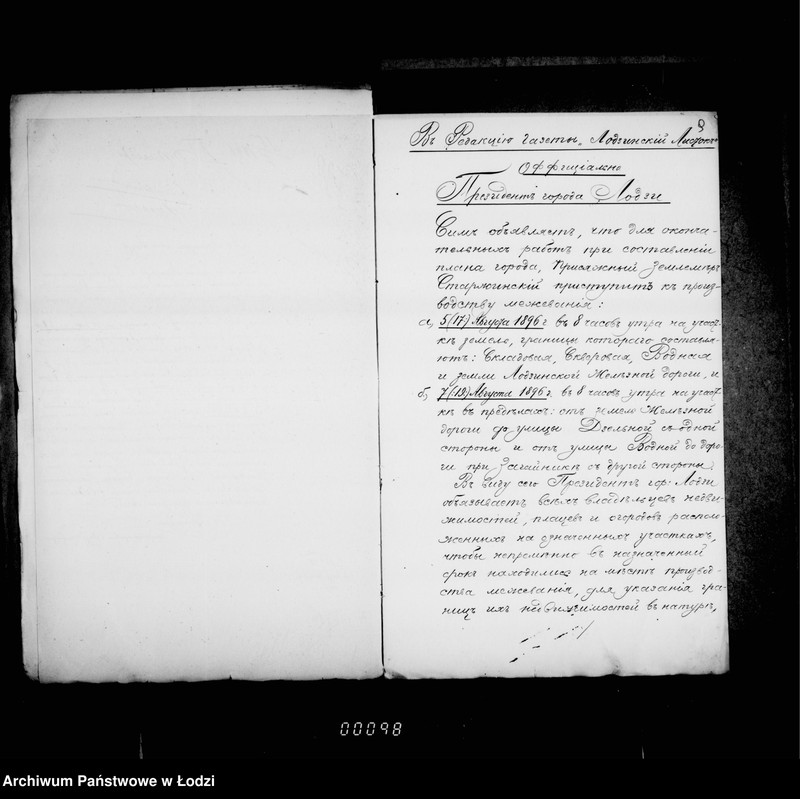 9
Въ Редакцію газеты „Лодзинскій Листокъ“
Оффиціально
Президентъ города Лодзи
Симъ объявляетъ, что для оконча-
тельныхъ работъ при составленіи
плана города, Присяжный Землемѣръ
Старжинскій приступитъ къ произ-
водству межеванія:
а) 5(17) Августа 1896 г. въ 8 часовъ утра на участ-
кѣ земель, границы котораго составля-
ютъ: Складовая, Скверовая, Водная
и земли Лодзинской Желѣзной дороги, и
б) 7(19) Августа 1896 г. въ 8 часовъ утра на участ-
кѣ въ предѣлахъ: отъ земель Желѣзной
дороги до улицы Дзельной съ одной
стороны и отъ улицы Водной до доро-
ги при Загайникѣ съ другой стороны.
Въ виду сего Президентъ гор: Лодзи
обязываетъ всѣхъ владѣльцевъ недви-
жимостей, плацевъ и огородовъ располо-
женныхъ на означенныхъ участкахъ,
чтобы непремѣнно въ назначенный
срокъ находились на мѣстѣ производ-
ства межеванія, для указанія гра-
ницъ ихъ недвижимостей въ натурѣ,
00098
Archiwum Państwowe w Łodzi